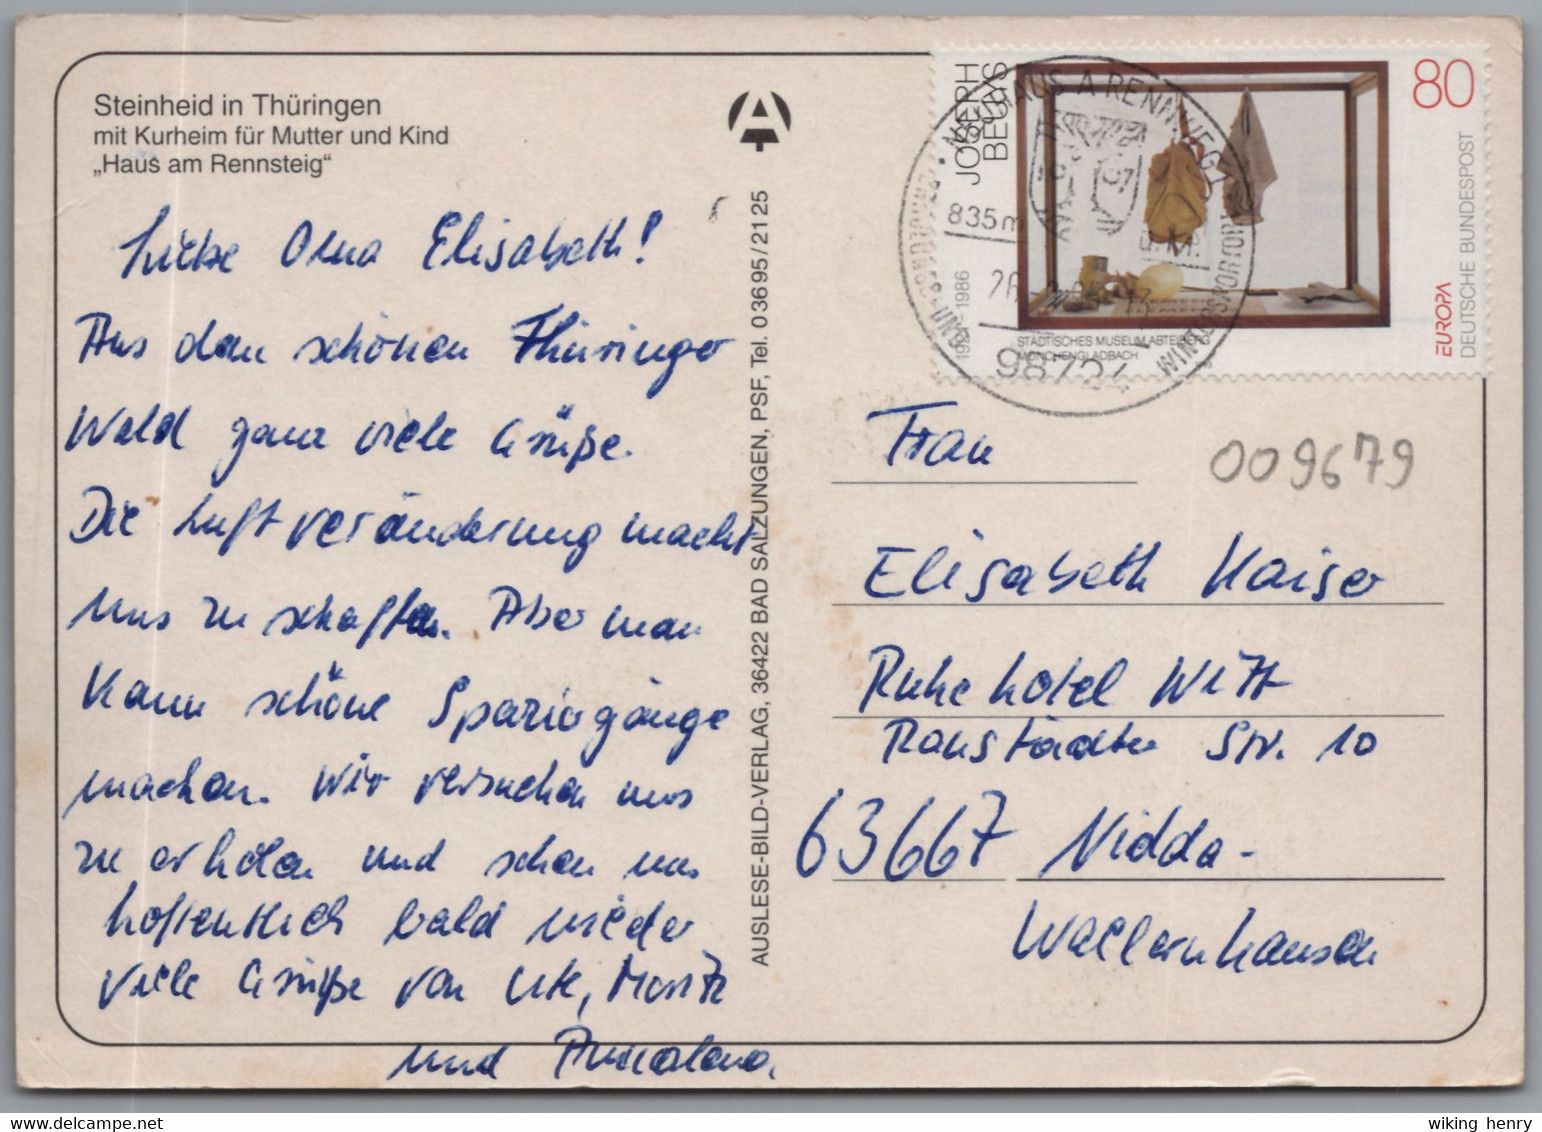 Steinheid in Thüringen
mit Kurheim für Mutter und Kind
„Haus am Rennsteig“
Liebe Oma Elisabeth!
Aus dem schönen Thüringer
Wald ganz viele Grüße.
Die Luftveränderung macht
uns zu schaffen. Aber man
kann schöne Spaziergänge
machen. Wir versuchen uns
zu erholen und sehen uns
hoffentlich bald wieder
Viele Grüße von Ute, Moritz
und
AUSLESE-BILD-VERLAG, 36422 BAD SALZUNGEN, PSF, Tel. 03695/2125
JOSEPH
BEUYS
1986
80
EUROPA
DEUTSCHE BUNDESPOST
STÄDTISCHES MUSEUM ABTEIBERG
MÖNCHENGLADBACH
NEUHAUS A RENNWEG
835m
98724
UND WINTERSPORTORT
009679
Frau
Elisabeth Kaiser
Ruhehotel Witt
Ranstädter Str. 10
63667 Nidda-
Wallernhausen
wiking henry